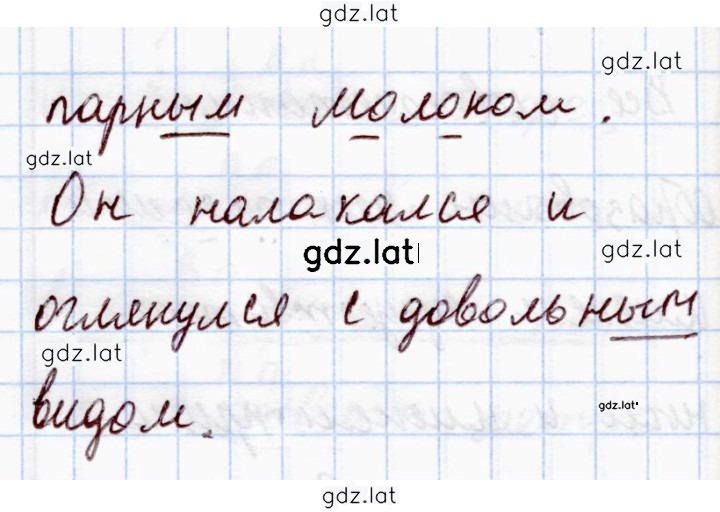 gdz.lat
gdz.lat
парным молоком.
gdz.lat
Он налакался и
gdz.lat
gdz.lat
оглянулся с довольным
gdz.lat
видом.
gdz.lat
gdz.lat